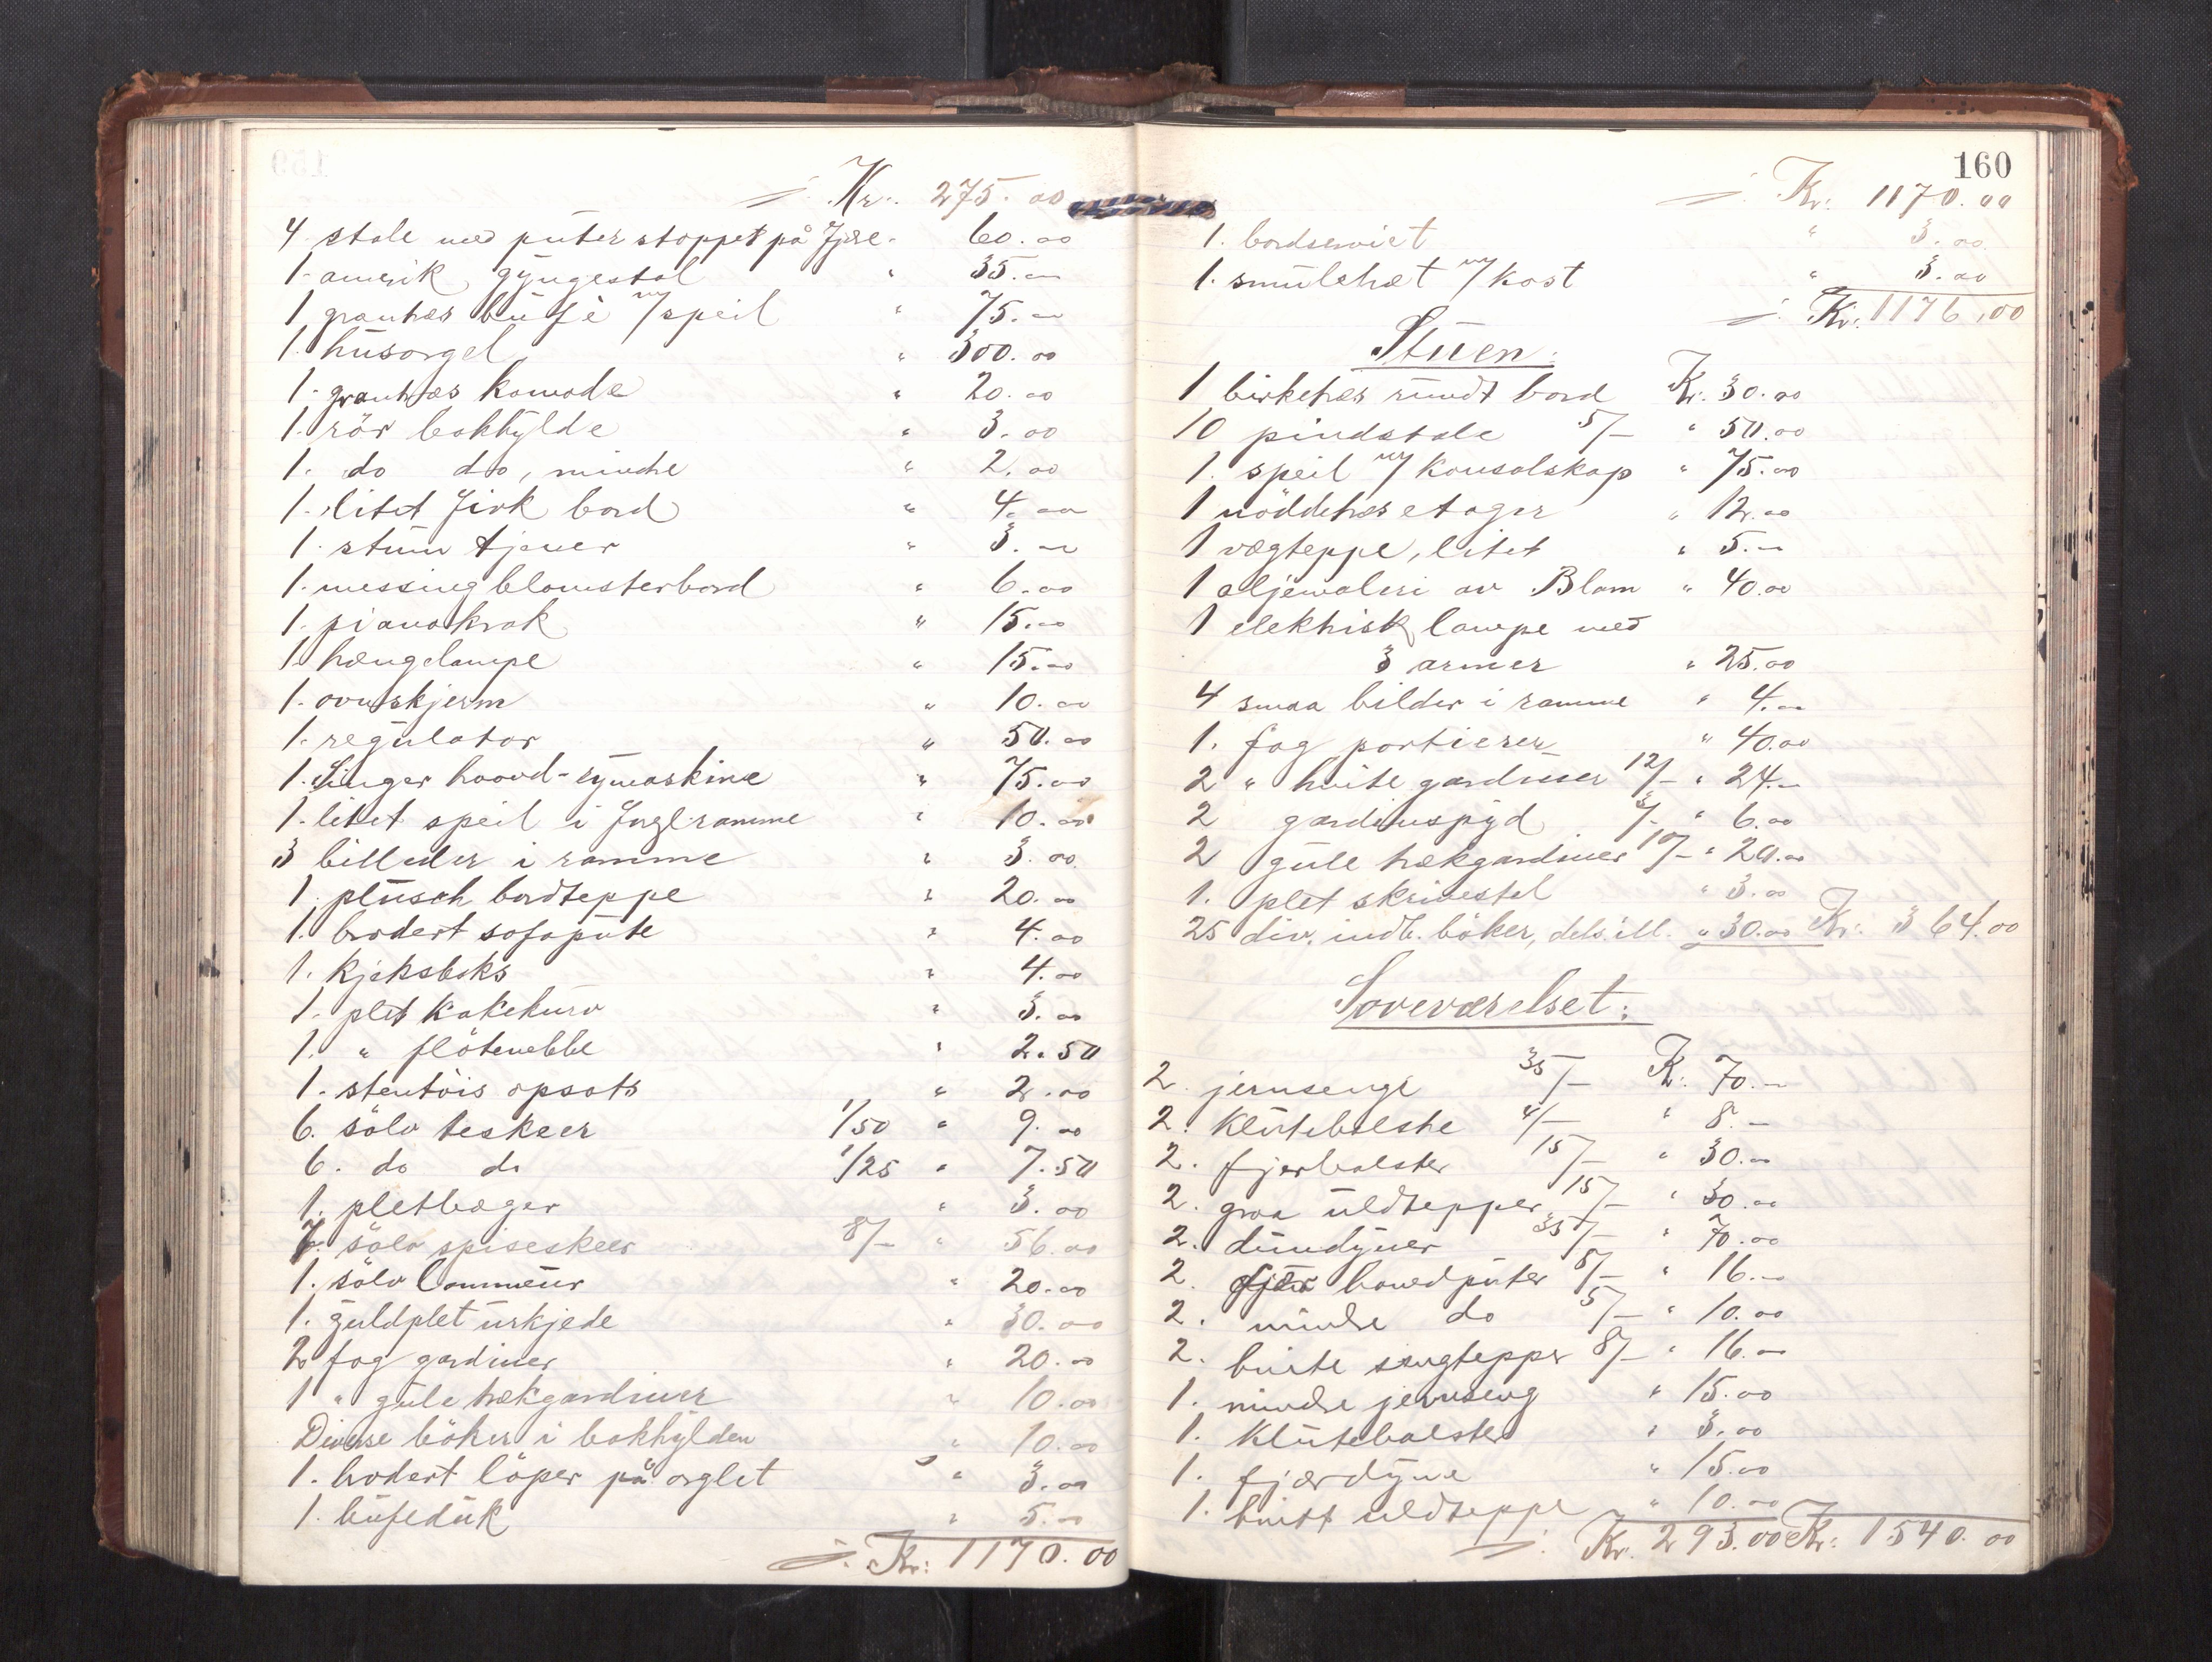 Kr. 275.00
4 stole med puter stoppet på fjære " 60.00
1. amerik. gyngestol " 35.00
1 grantræs büfè m/speil " 75.00
1. husorgel " 300.00
1. grantræs komode " 20.00
1. rör bokhylde " 3.00
1. do do, mindre " 2.00
1. litet firk. bord " 4.00
1. stum tjener " 3.00
1. messing blomsterbord " 6.00
1. pianokrak " 15.00
1. hængelampe " 15.00
1. ovnskjerm " 10.00
1. regulator " 50.00
1. Singer haand-symaskine " 75.00
1. litet speil i forgl. ramme " 10.00
3 billeder i ramme " 3.00
1. plüsch bordteppe " 20.00
1. brodert sofapute " 4.00
1. kjeksboks " 4.00
1. plet kakekurv " 3.00
1. " flötenebbe " 2.50
1. stentöis opsats " 2.00
6. sölv teskeer 1/50 " 9.00
6. do do 1/25 " 7.50
1. pletbæger " 3.00
7. sölv spiseskeer 8/- " 56.00
1. sölv lommeur " 20.00
1. guldplet urkjede " 30.00
2 fag gardiner " 20.00
1 " gule trækgardiner " 10.00
Diverse böker i bokhylden " 10.00
1. brodert löper på orglet " 3.00
1. büfeduk " 5.00
Kr: 1170.00
160
Kr: 1170.00
1. bordserviet " 3.00
1. smulebret m/kost " 3.00
Kr: 1176,00
Stuen:
1 birketræs rundt bord Kr. 30.00
10 pindstole 5/- " 50.00
1. speil m/konsolskap " 75.00
1 nöddetræs etager " 12.00
1 vægteppe, litet " 5.00
1 oljemaleri av Blom " 40.00
1 elektrisk lampe med
3 armer " 25.00
4 smaa bilder i ramme " 4.00
1. fag portierer " 40.00
2 " hvite gardiner 12/- " 24.-
2 gardinspyd 3/- " 6.00
2 gule trækgardiner 10/- " 20.00
1. plet skrivestel " 3.00
25 div. indb. böker, dels ill. " 30.00 Kr: 364.00
Soveværelset:
2. jernsenge 35/- Kr. 70.-
2. Klutebolstre 4/- " 8.-
2. fjærbolster 15/- " 30.00
2. graa uldtepper 15/- " 30.00
2. dundyner 35/- " 70.00
2. hovedputer 8/- " 16.-
2. mindre do 5/- " 10.00
2. hvite sengtepper 8/- " 16.00
1. mindre jernseng " 15.00
1. Klutebolster " 3.00
1. fjærdyne " 15.00
1. hvitt uldteppe " 10.00
Kr. 293.00 Kr: 1540.00